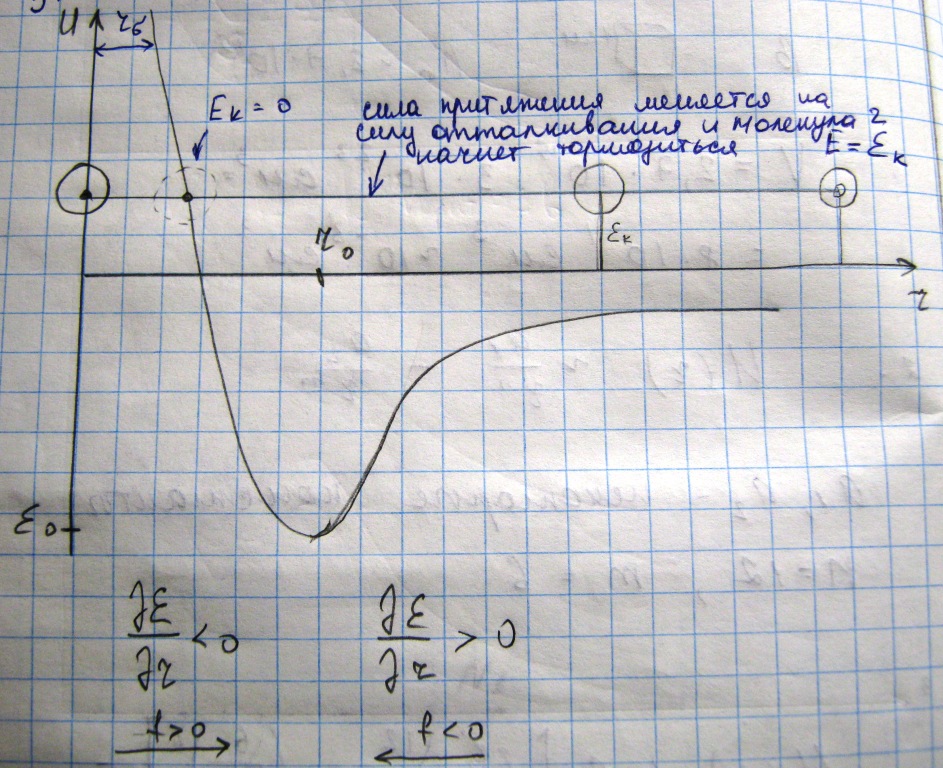 U r₅
Eк = 0
сила притяжения меняется на
силу отталкивания и молекула 2
начнет тормозиться
E = εк
εк
r₀
r
ε₀
∂ε/∂r < 0 ∂ε/∂r > 0
f > 0 f < 0